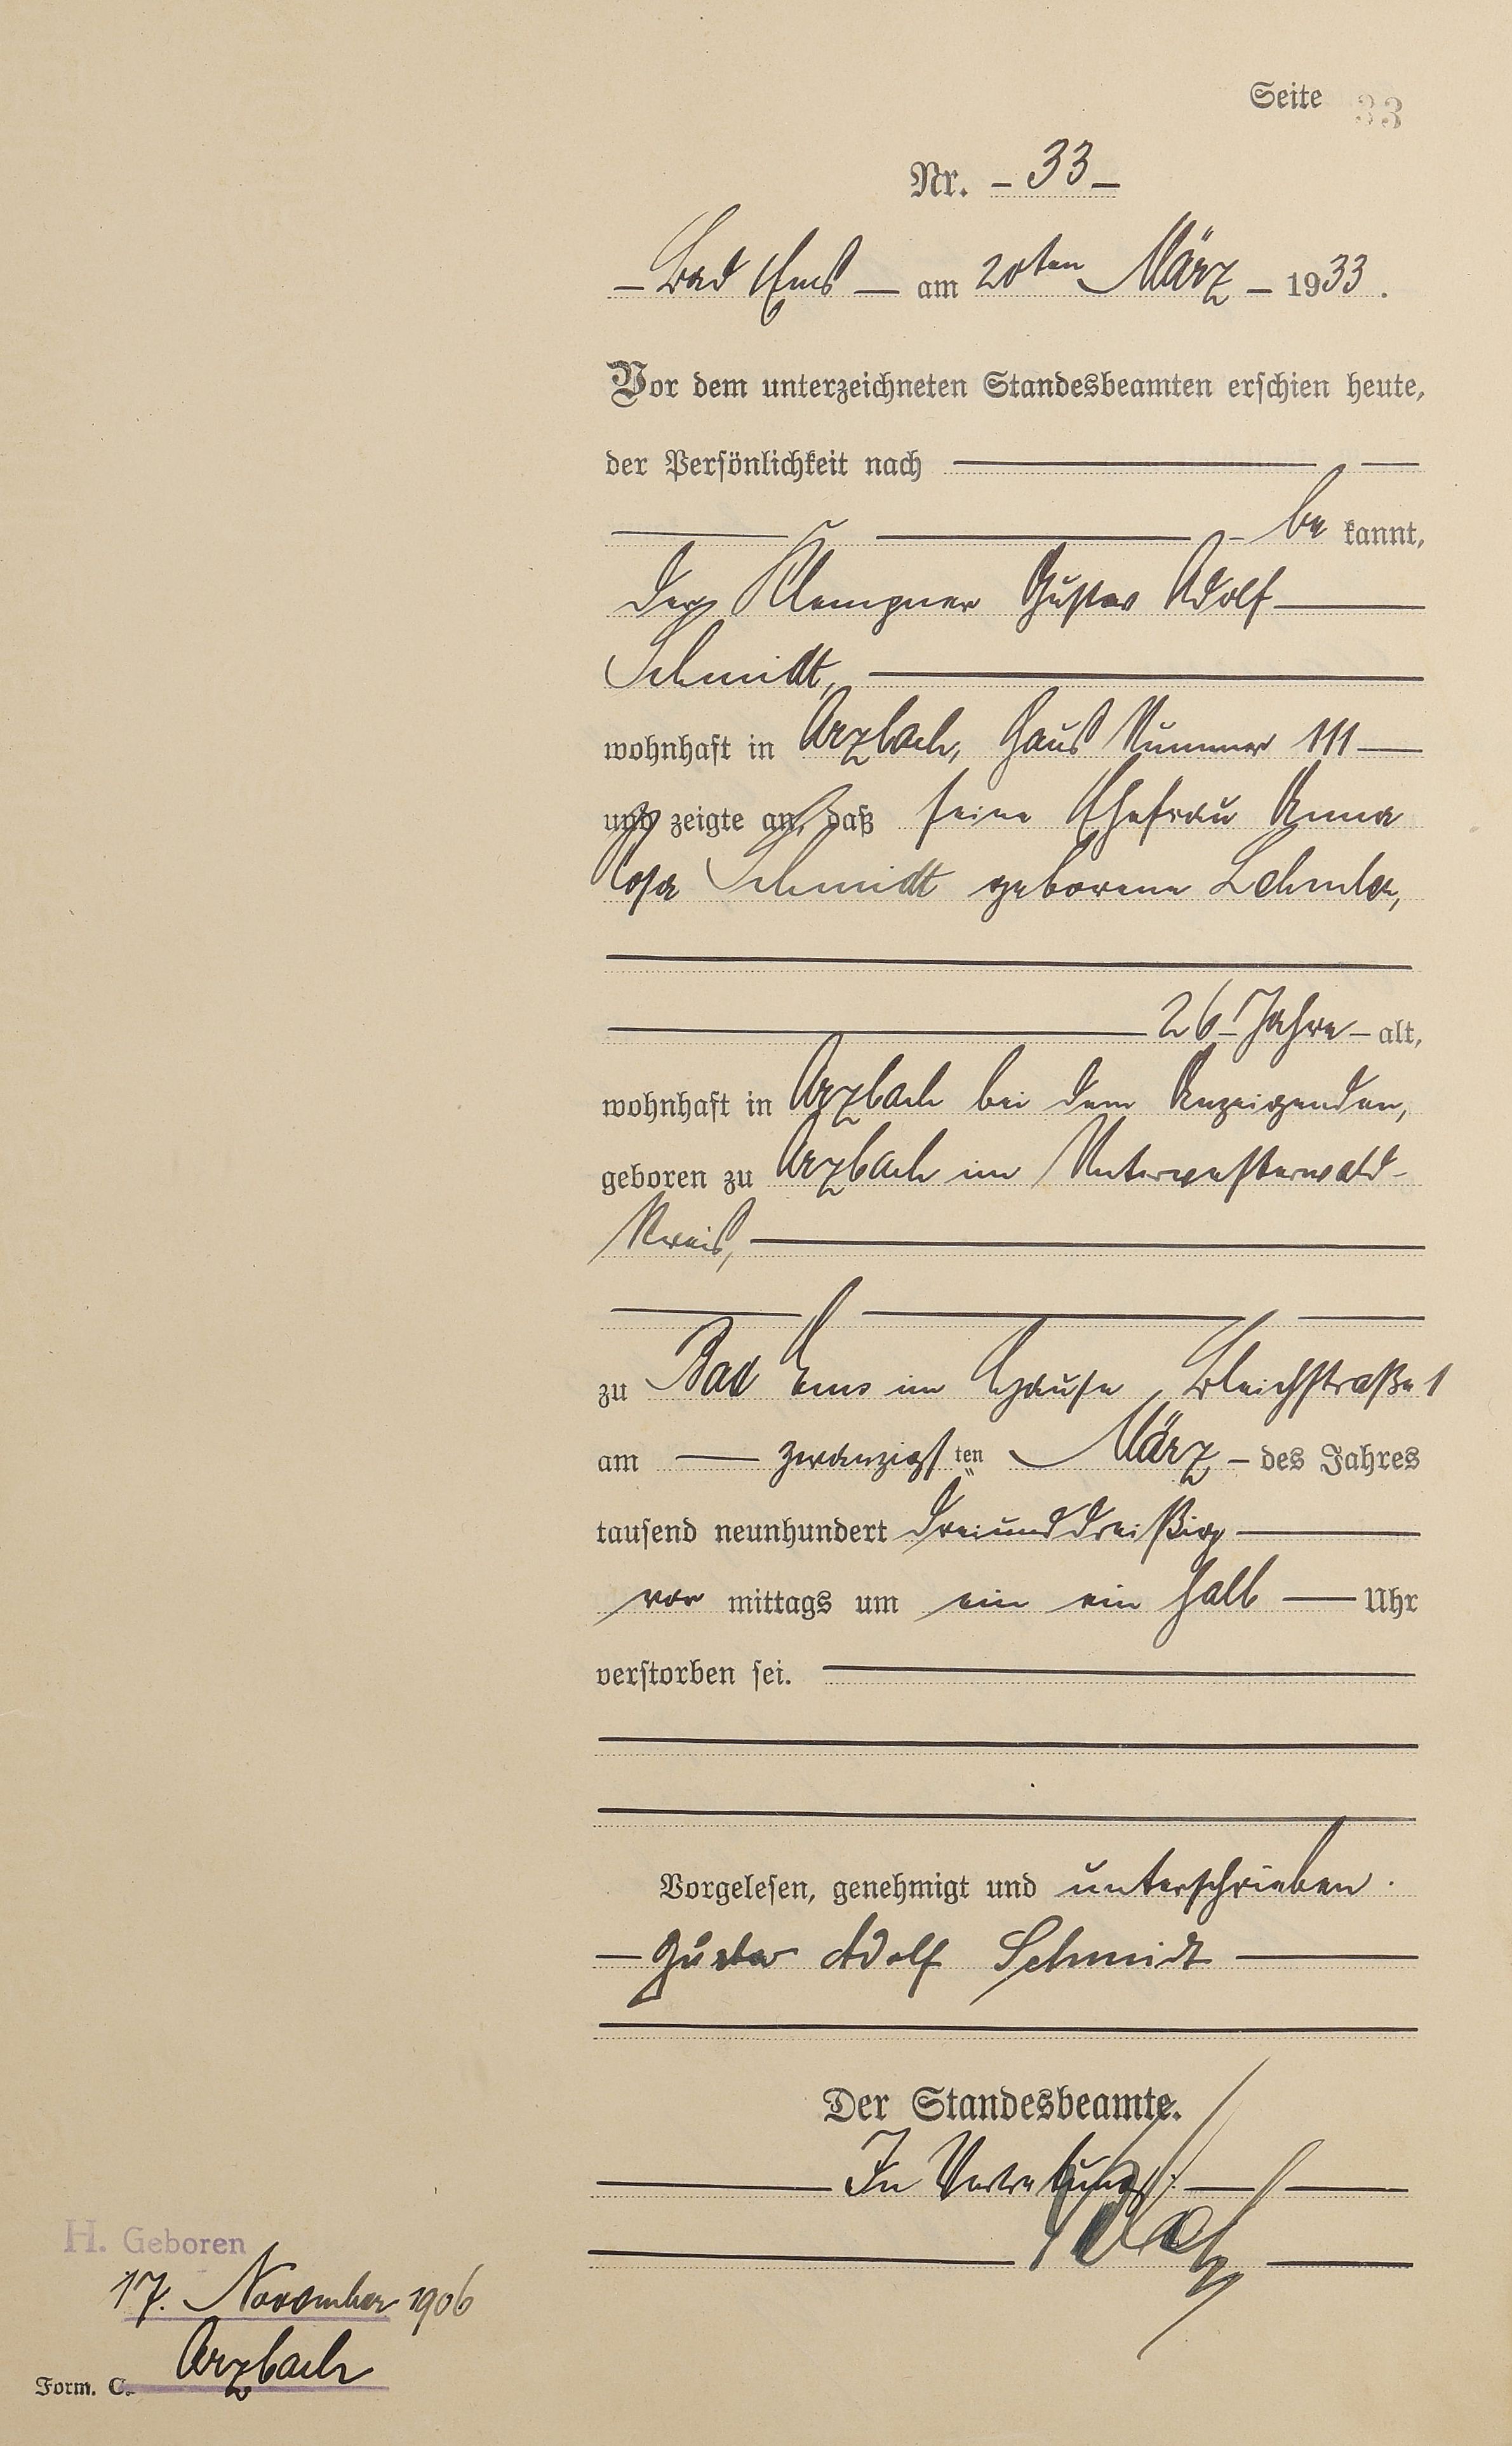 Seite 33
Nr. – 33 –
– Bad Ems – am 20ten März – 1933.
Vor dem unterzeichneten Standesbeamten erschien heute,
der Persönlichkeit nach
be kannt,
der Klempner Gustav Adolf
Schmidt,
wohnhaft in Arzbach, Haus Nummer 111
und zeigte an, daß seine Ehefrau Anna
Rosa Schmidt geborene
26 Jahre – alt,
wohnhaft in Arzbach bei dem Anzeigenden,
geboren zu Arzbach im Unterwesterwald-
kreis,
zu Bad Ems im Hause, Bleichstraße 1
am – zwanzigsten März – des Jahres
tausend neunhundert dreiunddreißig
vor mittags um ein ein halb – Uhr
verstorben sei.
Vorgelesen, genehmigt und unterschrieben.
– Gustav Adolf Schmidt –
Der Standesbeamte.
In Vertretung:
H. Geboren
17. November 1906
Arzbach
Form. C.